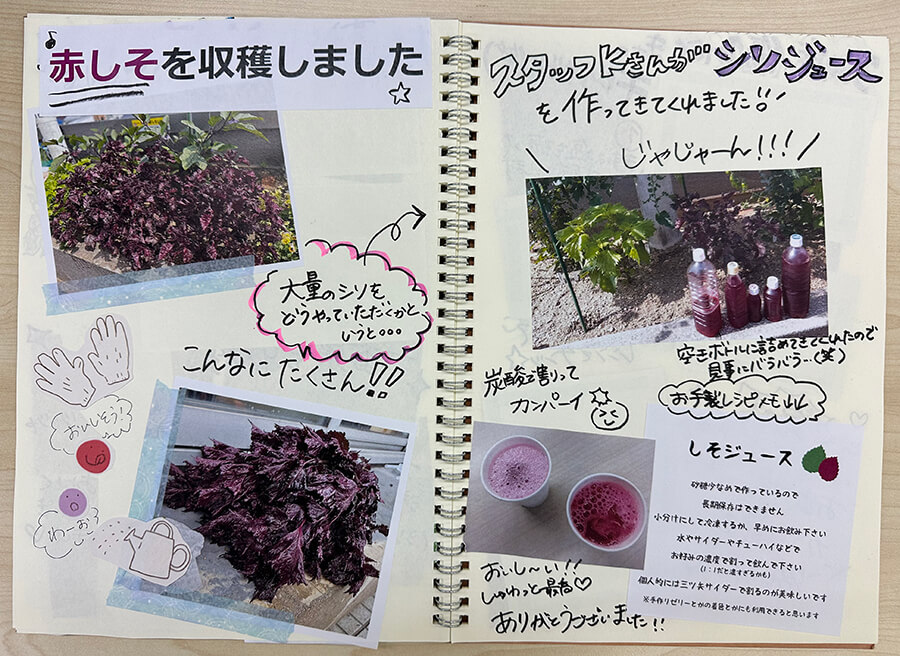 赤しそを収穫しました
大量のシソを
どうやっていただくかと
いうと・・・
こんなにたくさん!!
おいしそう!
わーおう
スタッフKさんが シソジュース
を作ってきてくれました!!
じゃじゃーん!!!
空きボトルに詰めてきてくれたので
見事にバラバラ…(笑)
炭酸で割って
カンパーイ
お手製レシピメモ
しそジュース
砂糖少なめで作っているので
長期保存はできません
小分けにして冷凍するか、早めにお飲み下さい
水やサイダーやチューハイなどで
お好みの濃度で割って飲んで下さい
(1:1だと濃すぎるかも)
個人的には三ツ矢サイダーで割るのが美味しいです
※手作りゼリーとかの着色とかにも利用できると思います
おいしーい!!
しゅわっと最高♡
ありがとうございました!!